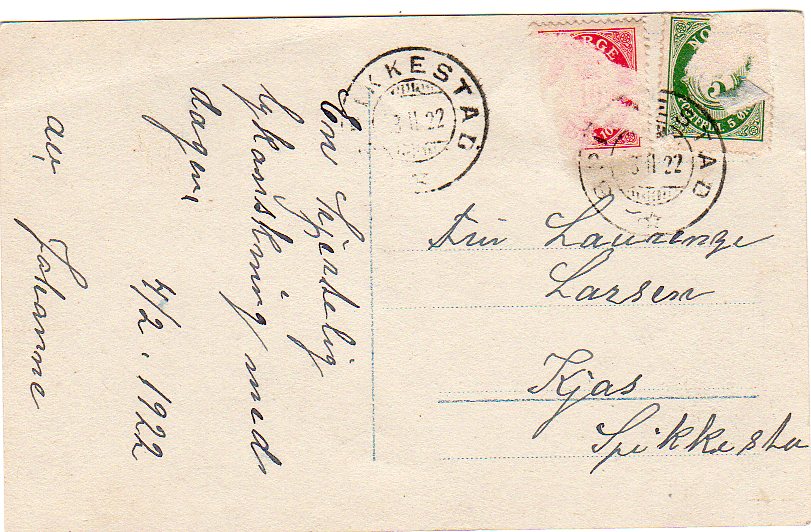 En hjertelig
lykønskning med
dagen,
4/2. 1922
av Johanne
IKKESTAD
3 II 22
RGE
10
NO
5
POSTFRIM. 5 ØRE
STAD
3 II 22
Fru Laurenze
Larsen
Kjøs
Spikkesta